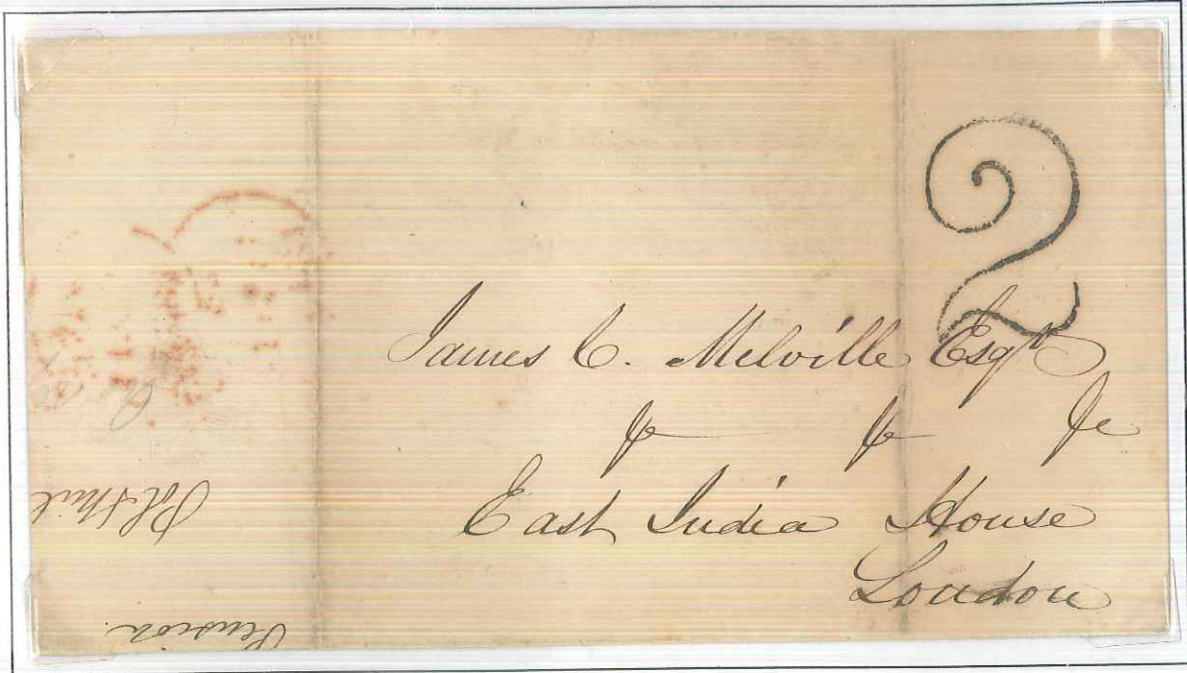 2
James C. Melville Esqr
&c &c &c
East India House
London
Pension.